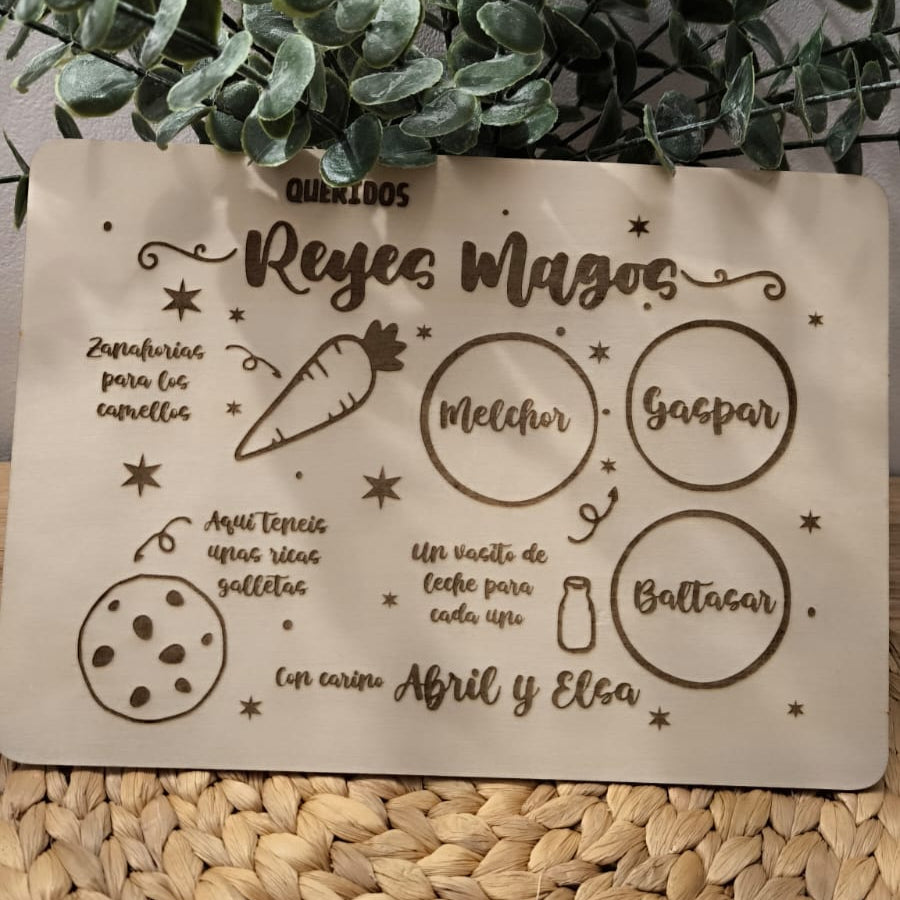 QUERIDOS
Reyes Magos
Zanahorias
para los
camellos
Melchor
Gaspar
Aqui Teneis
unas ricas
galletas
Un vasito de
leche para
cada uno
Baltasar
Con carino Abril y Elsa